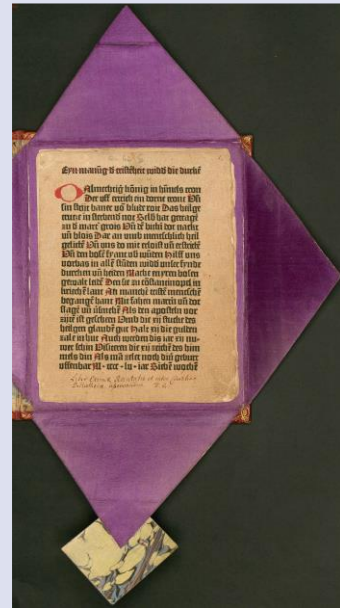 Eyn manūg d' cristēheit widd' die durkē
O Almechtig kōnig in himels tron
Der uff ertrich ein dorne crone Vn̄
sin strijt baner vō blude roit Das heilge
crutze in sterbend not Selb hat getragē
zu d' mart' grois Vn̄ dē bittn̄ dot nackt
vn̄ blois Dar an vmb menschlich heil
gelidē Vn̄ vns do mit erloist vn̄ erstridē
Vn̄ den bosē fyant vb' wūden Hilff vns
vorbas in allē stūden widd' vnser fynde
durcken vn̄ heiden Mache en yren bosen
gewalt leidē Den sie zu cōstantinopel in
kriechē lant An manchē cristē menschē
begangē hant Mit fahen martn̄ vn̄ dot
slagē vn̄ v'smehē Als den aposteln vor
zijtē ist geschehē Umb die xij stucke des
heilgen glaubē gut Halt xij die gulden
zale in hut Auch werden dis iar xij nu
wer schin Visiteren die xij zeichē des him
mels din Als mā zelet noch din' geburt
offenbar M·cccc·lv·iar Siebē wochē